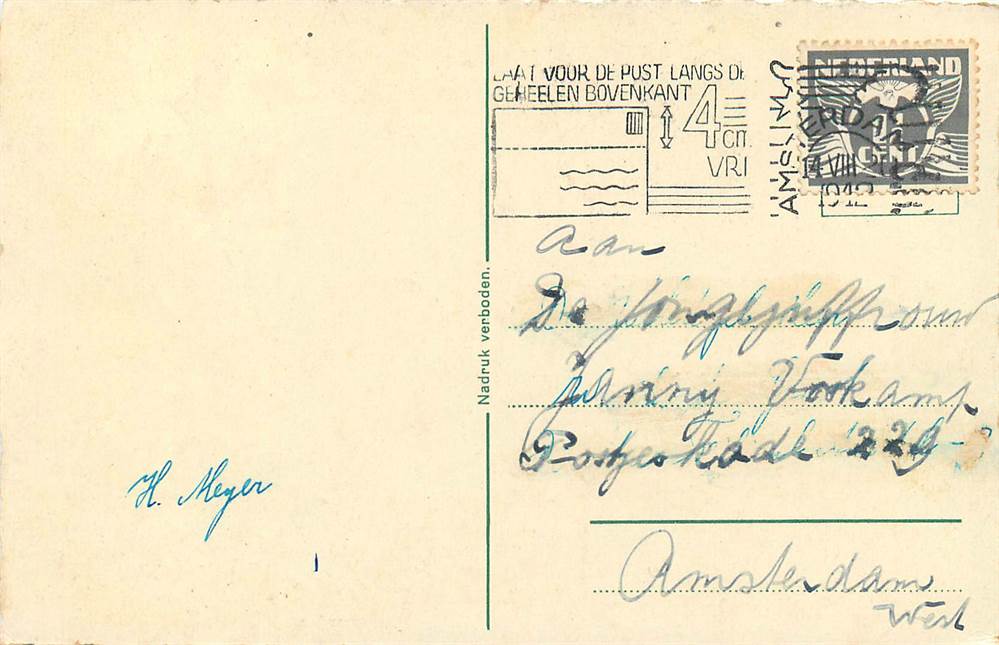 LAAT VOOR DE POST LANGS DE
GEHEELEN BOVENKANT
4
cm.
VRIJ
NEDERLAND
CENT
AMSTERDAM
14 VIII
1942
Nadruk verboden.
Aan
De Jongejuffrouw
Janny Vookamp
Postjeskade 229
Amsterdam
West
H. Meyer